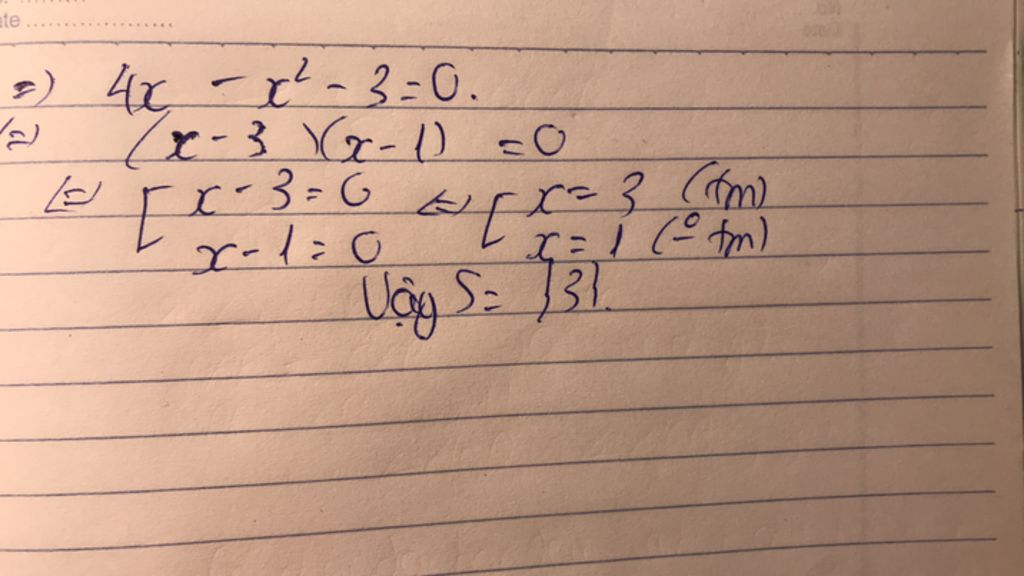 ate ....................
=) 4x - x² - 3 = 0.
(=) (x - 3)(x - 1) = 0
(=) [ x - 3 = 0 (=) [ x = 3 (tm)
x - 1 = 0 x = 1 (ko tm)
Vậy S = {3}.